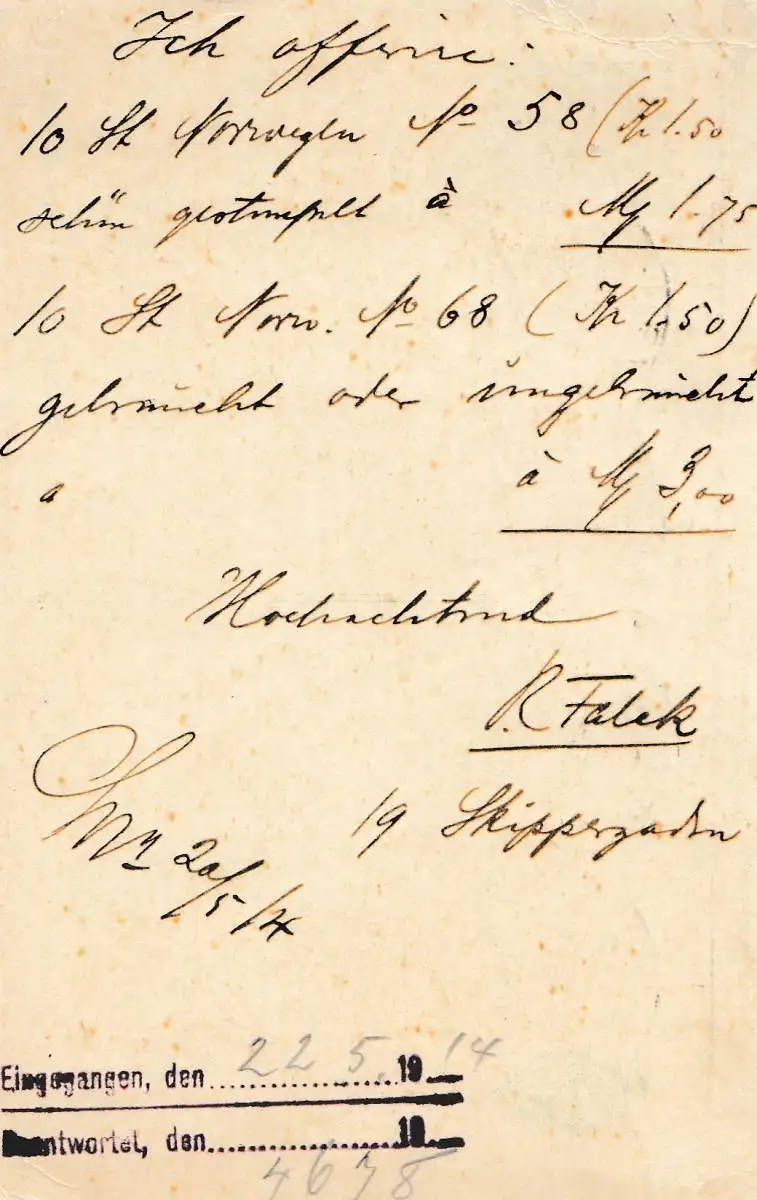 Ich offerire:
10 St Norwegen No 58 (Kr 1.50
schön gestempelt à M 1.75
10 St Norw. No 68 (Kr 1.50)
gebraucht oder ungebraucht
à M 3,00
Hochachtend
R. Falck
19 Skippergaden
20/5/14
Eingegangen, den 22 5. 19 14
Beantwortet, den 19
4678